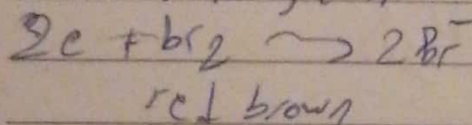 2e + br₂ → 2Br⁻
red brown